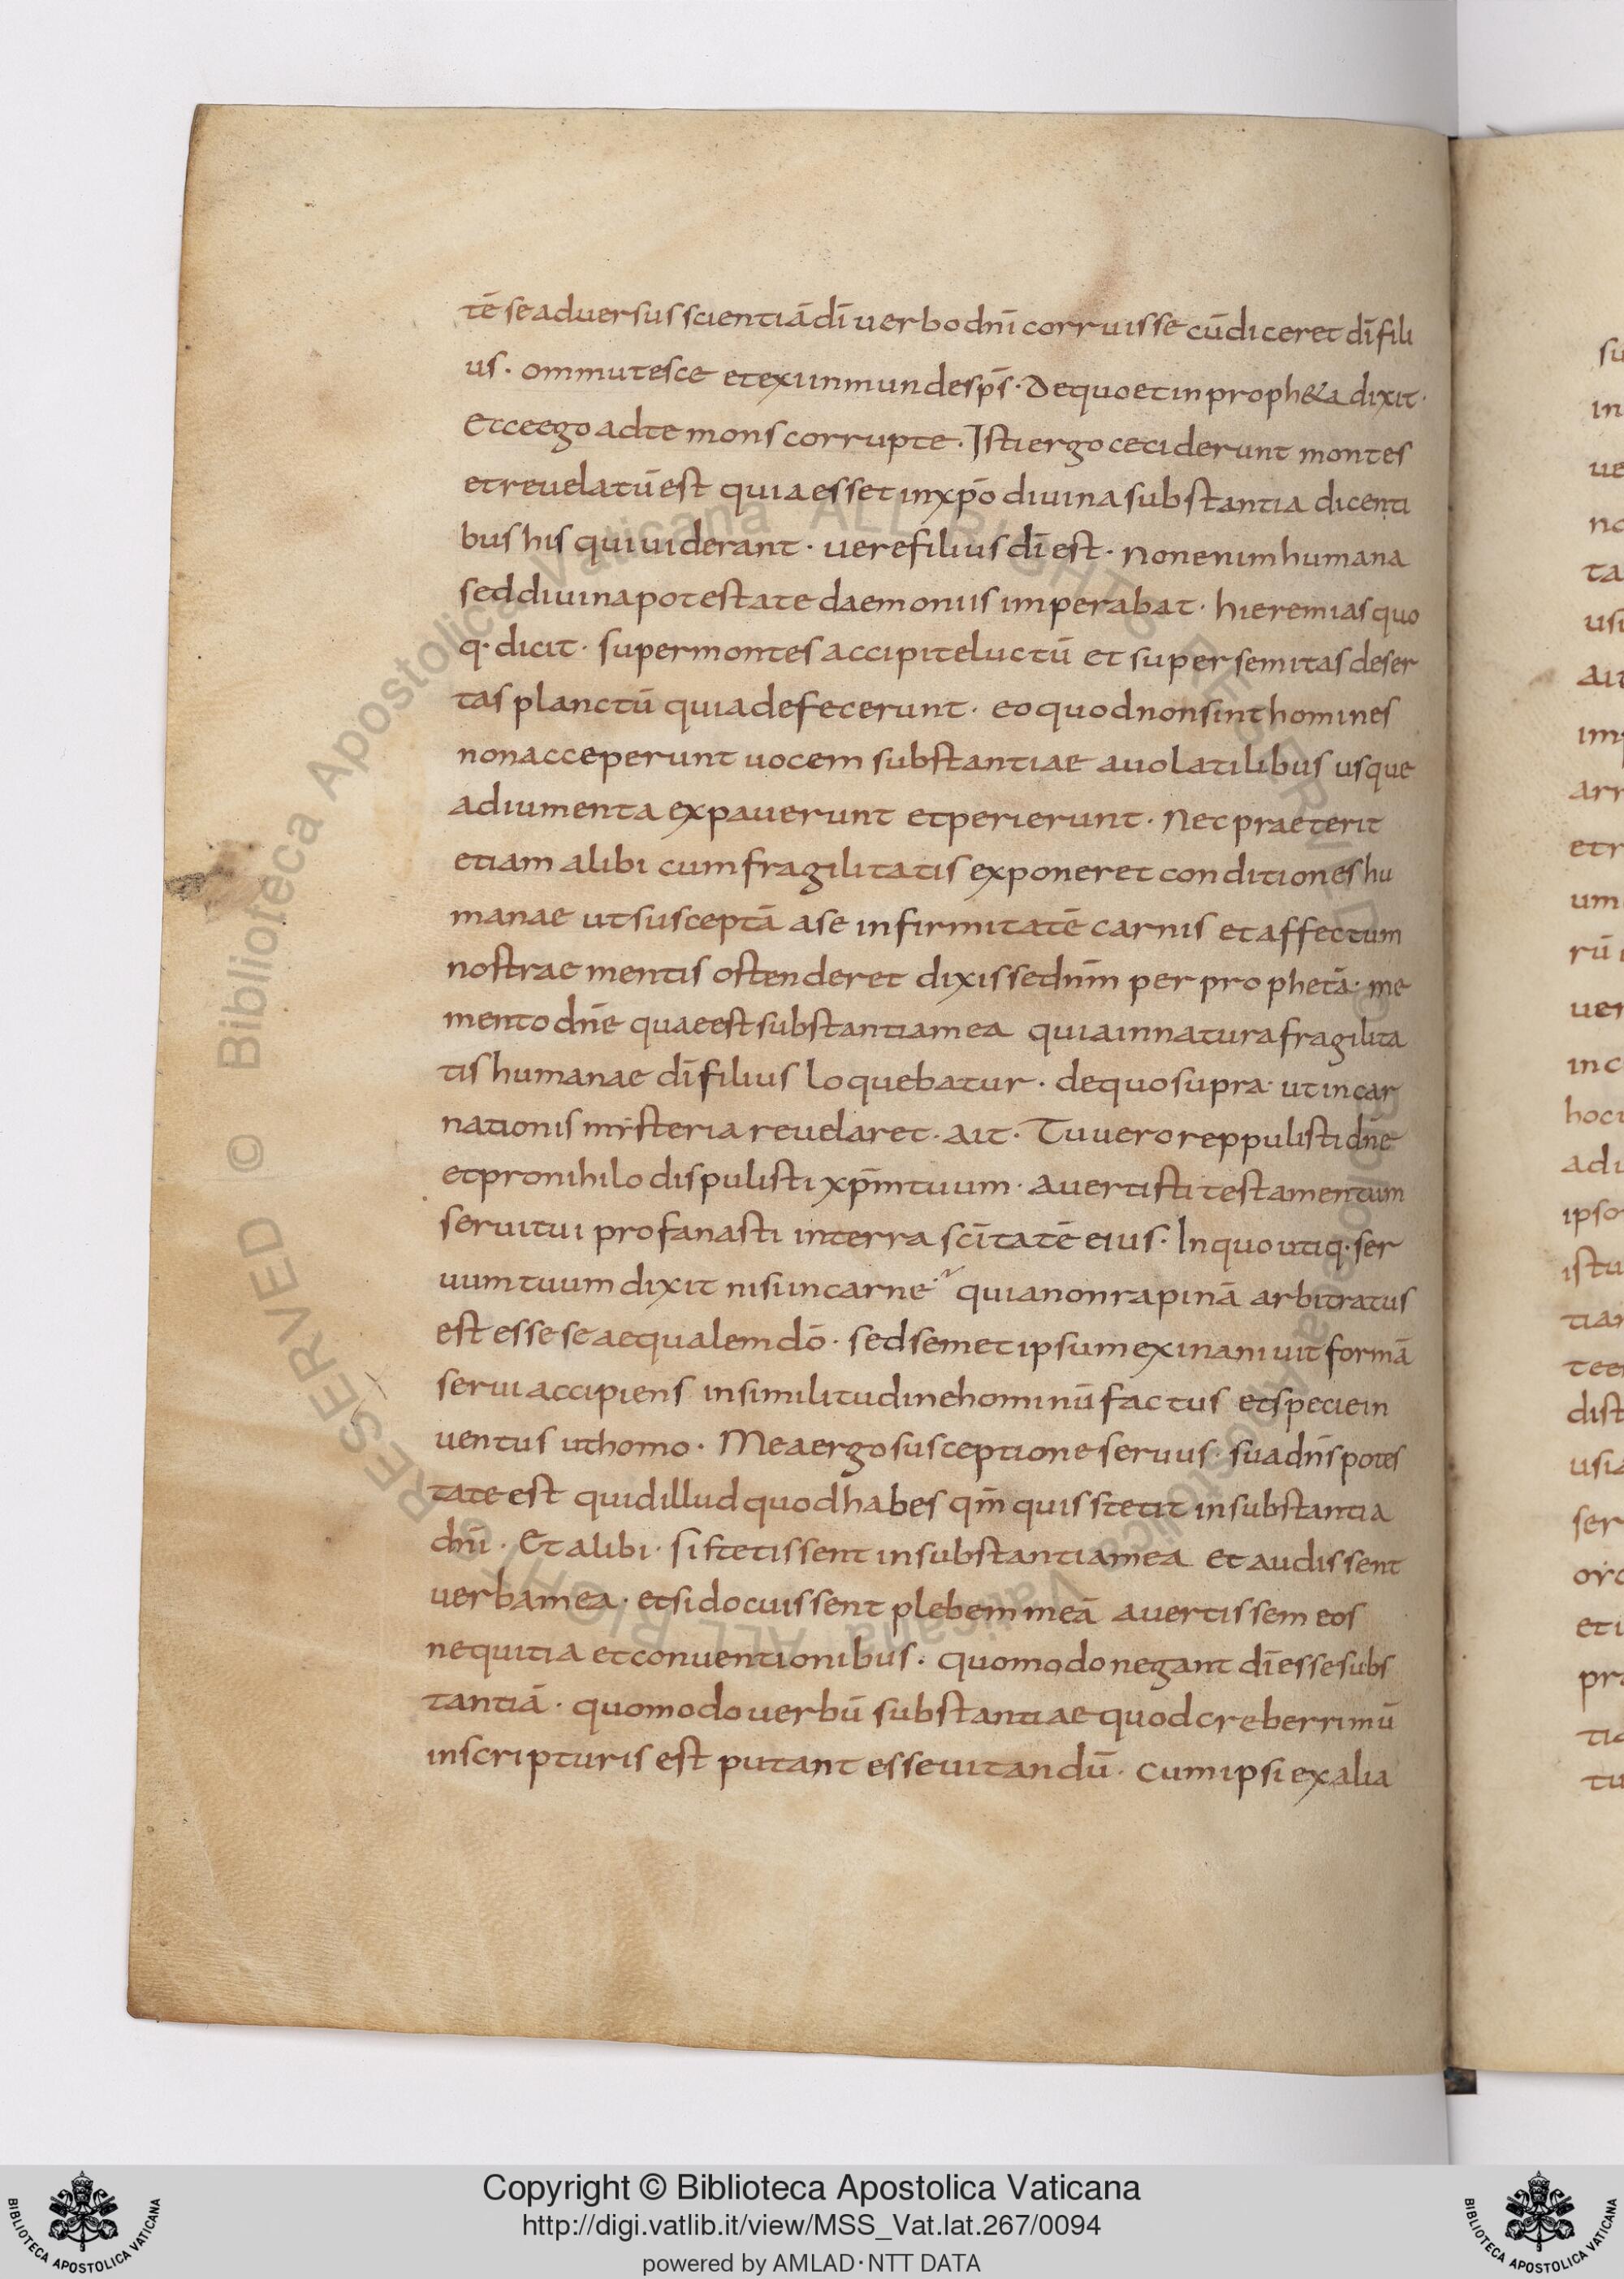 tē se aduersus scientiā dī uerbo dnī corruisse cū diceret dī fili
us · ommutesce et exi inmunde sps̄ · De quo et in proph&a dixit ·
Etce ego ad te mons corrupte · Isti ergo ceciderunt montes
et reuelatū est quia esset in xp̄o diuina substantia dicenti
bus his qui uiderant · uere filius dī est · Non enim humana
sed diuina potestate daemoniis imperabat · hieremias quo
q· dicit · super montes accipite luctū et super semitas deser
tas planctū quia defecerunt · eo quod non sint homines
non acceperunt uocem substantiae auolatilibus usque
ad iumenta expauerunt et perierunt · Nec praeterit
etiam alibi cum fragilitatis exponeret conditiones hu
manae ut susceptā a se infirmitatē carnis et affectum
nostrae mentis ostenderet dixisse dnm̄ per prophetā · me
mento dnē quae est substantia mea quia in natura fragilita
tis humanae dī filius loquebatur · de quo supra · ut incar
nationis mysteria reuelaret · ait · Tu uero reppulisti dnē
et pro nihilo dispulisti xpm̄ tuum · auertisti testamentum
seruitui profanasti in terra scītatē eius · In quo utiq· ser
uum tuum dixit nisi in carne · quia non rapinā arbitratus
est esse se aequalem dō · sed semet ipsum exinaniuit formā
serui accipiens in similitudine hominū factus et specie in
uentus ut homo · Mea ergo susceptione seruus · sua dns̄ potes
tate est quid illud quod habes qm̄ quis stetit in substantia
dnī · Et alibi · si stetissent in substantia mea et audissent
uerba mea · et si docuissent plebem meā auertissem eos
nequitia et conuentionibus · quomodo negant dī esse subs
tantiā · quomodo uerbū substantiae quod creberrimū
in scripturis est putant esse uitandū · cum ipsi ex alia
su
in
ue
no
ta
usi
ait
im
arr
etr
um
rū
uer
in c
hoc
adi
ipso
istu
tiar
tee
dist
usia
ser
et i
pra
tu
Biblioteca Apostolica Vaticana ALL RIGHTS RESERVED ©
Copyright © Biblioteca Apostolica Vaticana
http://digi.vatlib.it/view/MSS_Vat.lat.267/0094
powered by AMLAD · NTT DATA
BIBLIOTECA APOSTOLICA VATICANA
BIBLIOTECA APOSTOLICA VATICANA